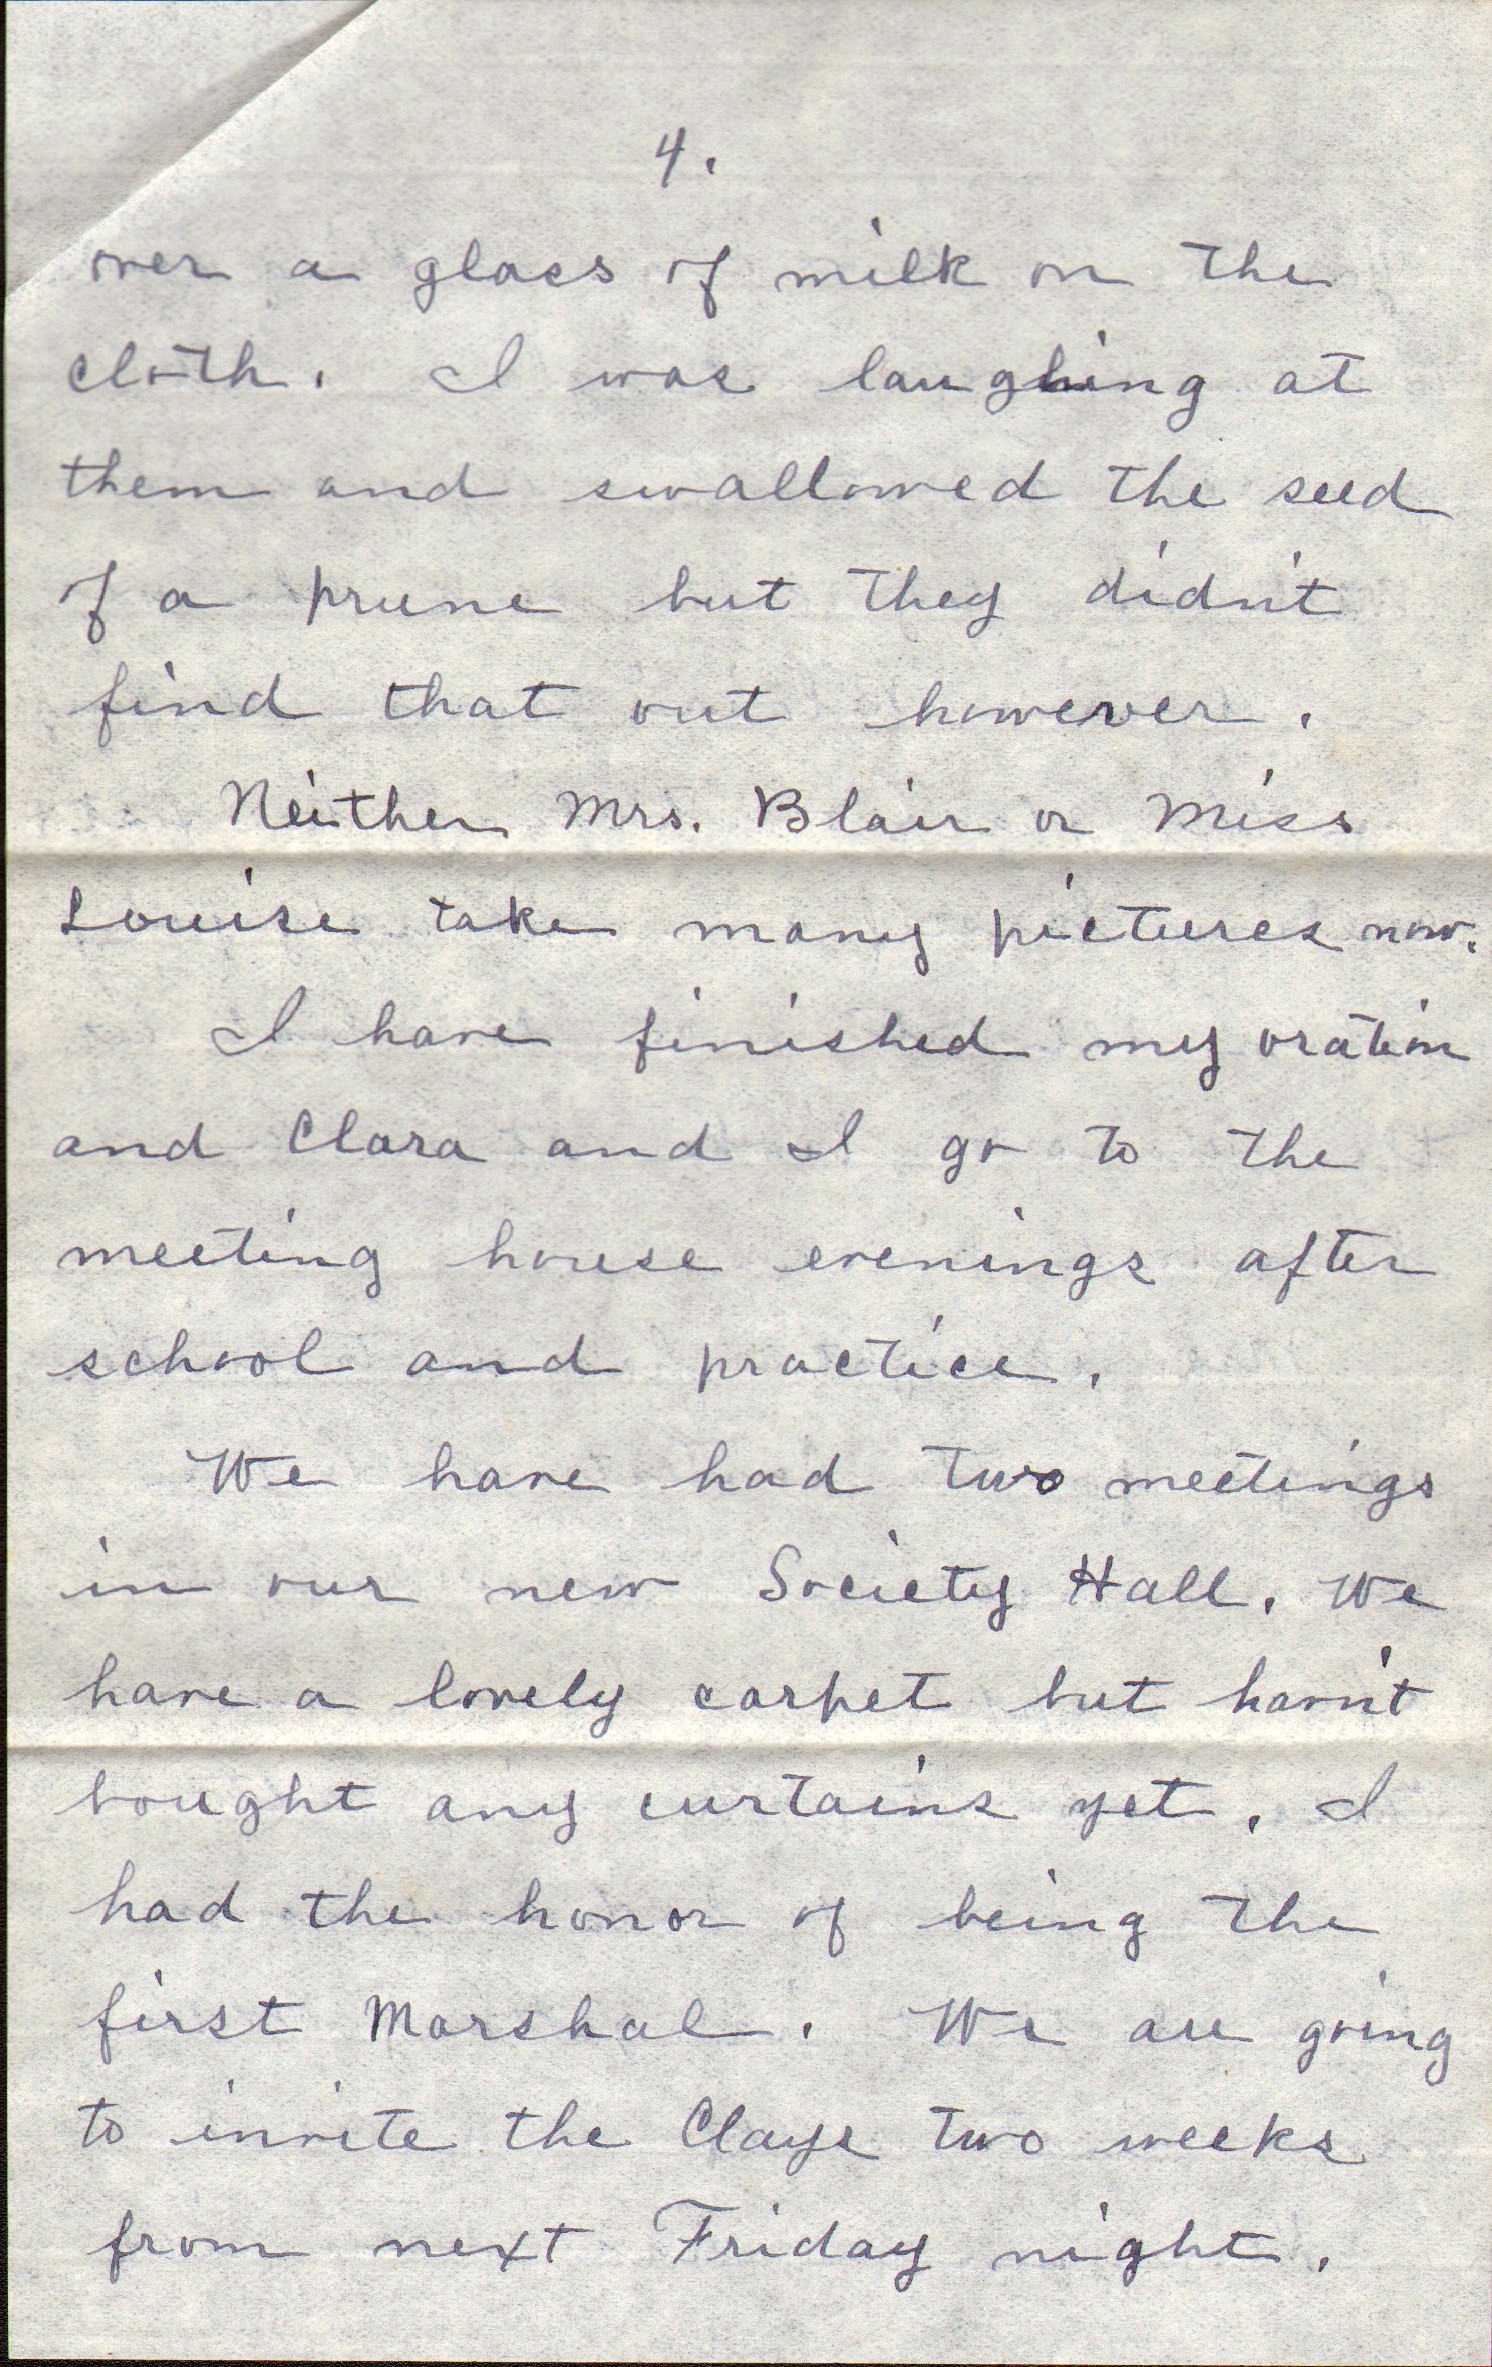 4.
over a glass of milk on the
cloth. I was laughing at
them and swallowed the seed
of a prune but they didn't
find that out however.
Neither Mrs. Blair or Miss
Louise take many pictures now.
I have finished my oration
and Clara and I go to the
meeting house evenings after
school and practice.
We have had two meetings
in our new Society Hall. We
have a lovely carpet but havn't
bought any curtains yet. I
had the honor of being the
first Marshal. We are going
to invite the Clays two weeks
from next Friday night.